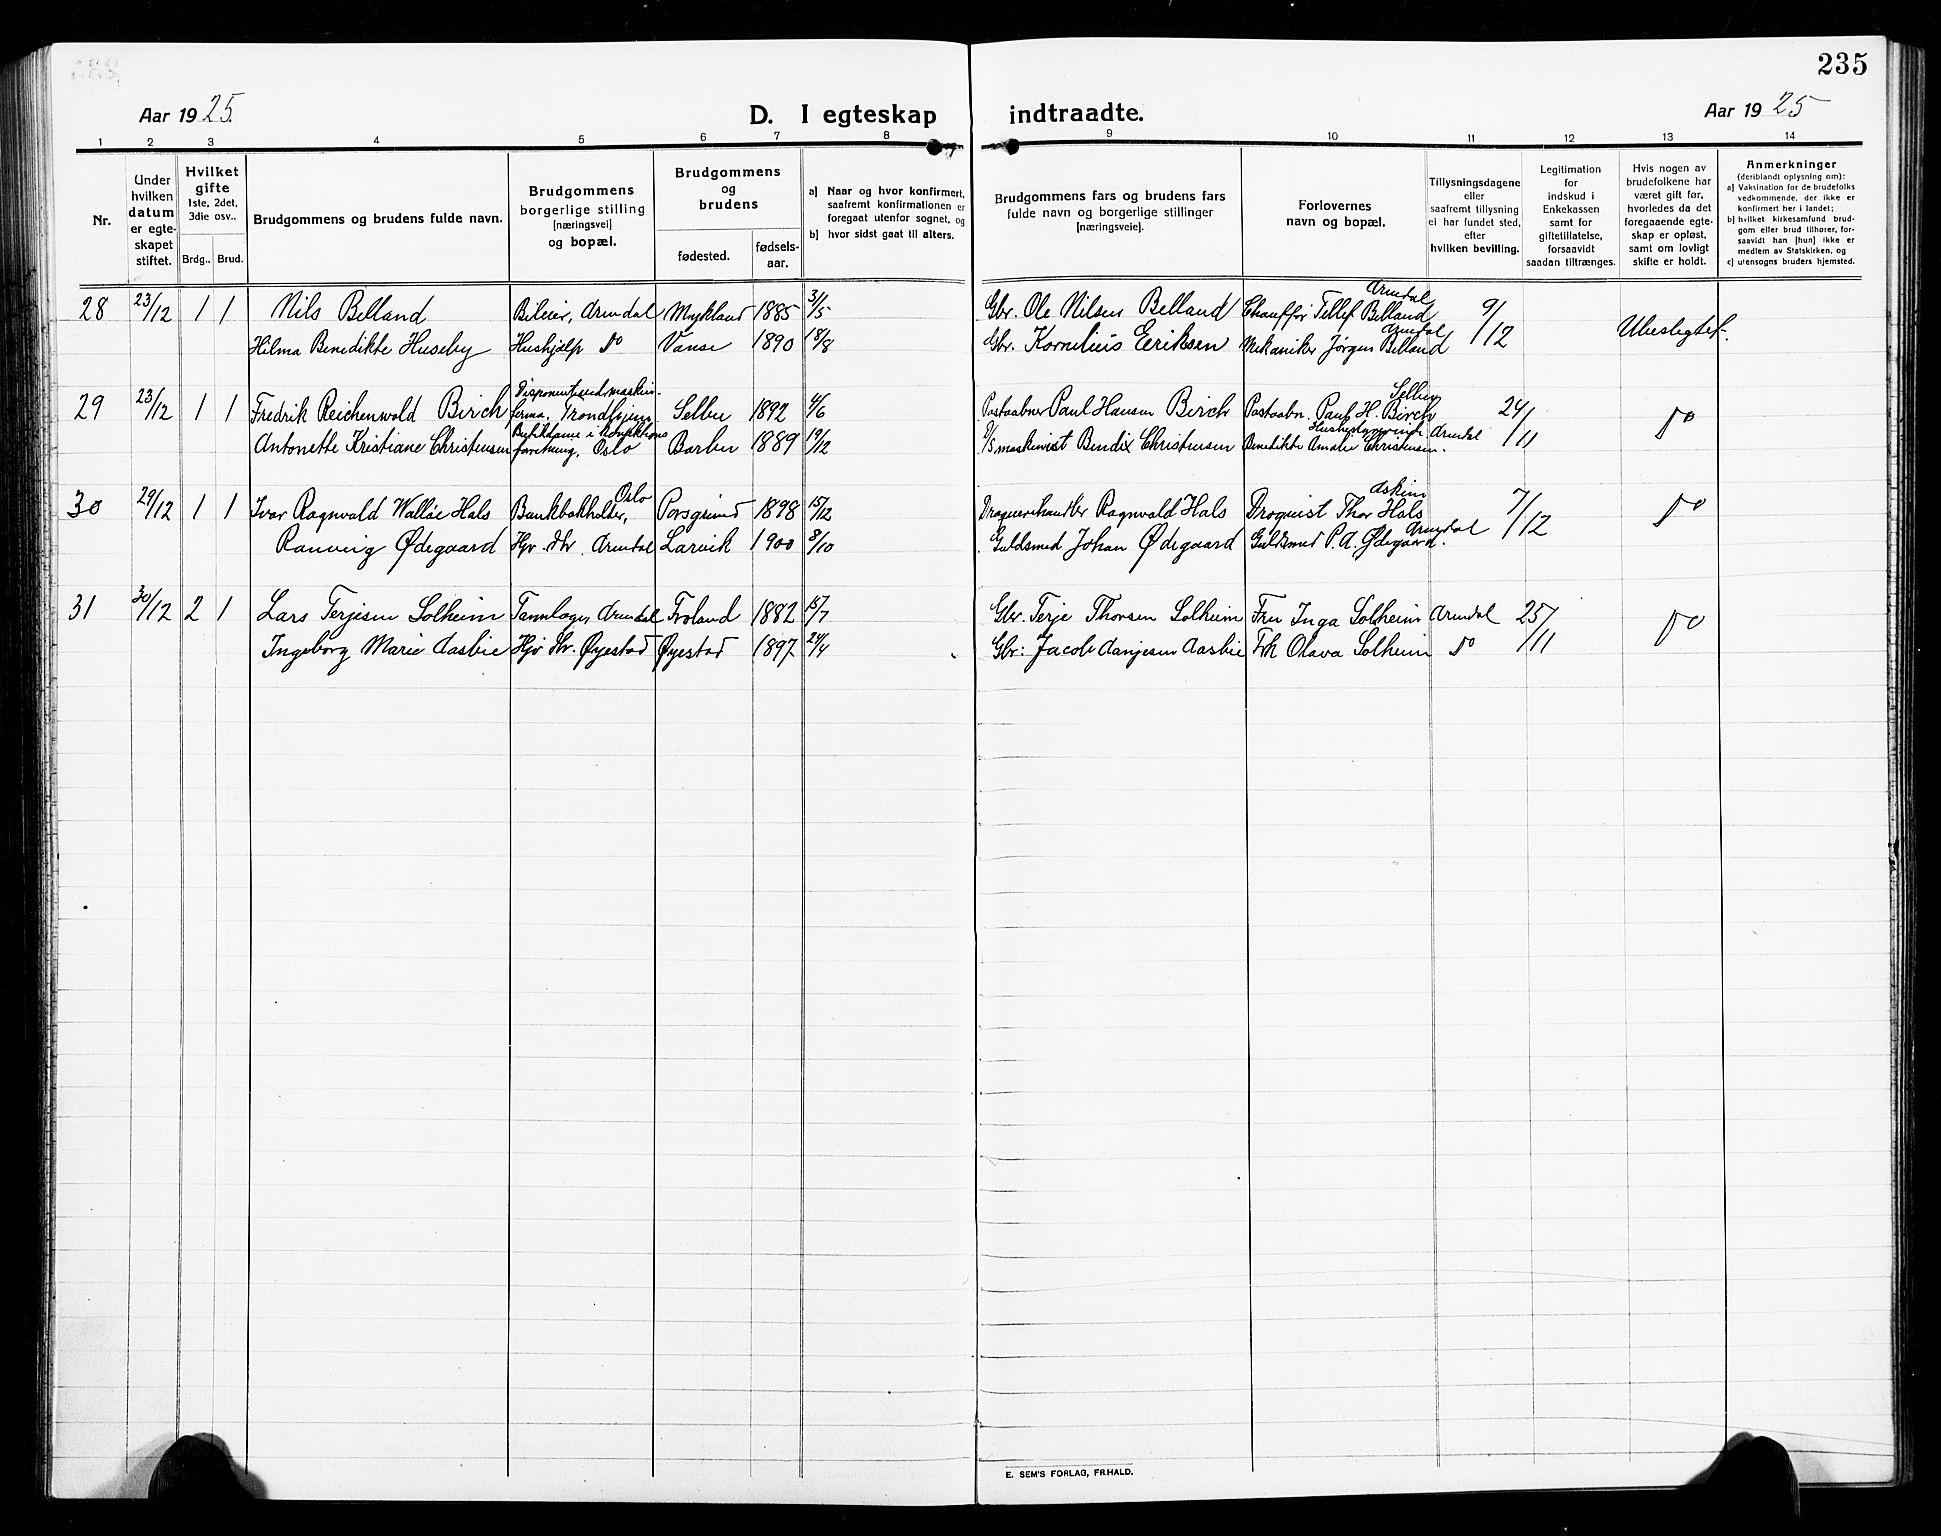 235
Aar 1925.
D. I egteskap indtraadte.
Aar 1925
1 2 3 4 5 6 7 8 9 10 11 12 13 14
Nr.
Under hvilken datum er egteskapet stiftet.
Hvilket gifte 1ste, 2det, 3die osv..
Brdg.. Brud.
Brudgommens og brudens fulde navn.
Brudgommens borgerlige stilling [næringsvei] og bopæl.
Brudgommens og brudens
fødested.
fødsels-aar.
a] Naar og hvor konfirmert, saafremt konfirmationen er foregaat utenfor sognet, og
b] hvor sidst gaat til alters.
Brudgommens fars og brudens fars fulde navn og borgerlige stillinger [næringsveie].
Forlovernes navn og bopæl.
Tillysningsdagene eller saafremt tillysning ei har fundet sted, efter hvilken bevilling.
Legitimation for indskud i Enkekassen samt for giftetillatelse, forsaavidt saadan tiltrænges.
Hvis nogen av brudefolkene har været gift før, hvorledes da det foregaaende egteskap er opløst, samt om lovligt skifte er holdt.
Anmerkninger (deriblandt oplysning om):
a] Vaksination for de brudefolks vedkommende, der ikke er konfirmert her i landet;
b] hvilket kirkesamfund brudgom eller brud tilhører, forsaavidt han [hun] ikke er medlem av Statskirken, og
c] utensogns bruders hjemsted.
28 23/12 1 1 Nils Belland Bileier, Arendal Mykland 1885 3/5 Gbr. Ole Nilsen Belland Chauffør Tellef Belland Arendal 9/12 Ubeslegtet.
Hilma Benedikte Huseby Hushjælp do Vanse 1890 18/8 Gbr. Kornelius Eriksen Mekaniker Jørgen Belland Arendal
29 23/12 1 1 Fredrik Reichenwald Birch Disponent ved maskinfirma, Trondhjem Selbu 1892 4/6 Postaabner Paul Hansen Birch Postaabn. Paul H. Birch Selbu 24/11 do
Antonette Kristiane Christensen forretning, Oslo Barbu 1889 19/12 D/Smaskinist Bendix Christensen Benedikte Amalie Christensen. Arendal
30 29/12 1 1 Ivar Ragnvald Walløe Hals Bankbokholder, Oslo Porsgrund 1898 15/12 Droguerihandler Ragnvald Hals Droguist Thor Hals Askim 7/12 do
Ranveig Ødegaard Hjv. Dtr. Arendal Larvik 1900 8/10 Guldsmed Johan Ødegaard Guldsmed P. A. Ødegaard. Arendal
31 30/12 2 1 Lars Terjesen Solheim Tannlæge, Arendal Froland 1882 15/7 Gbr. Terje Thorsen Solheim Fru Inga Solheim Arendal 25/11 do
Ingeborg Marie Aasbie Hjv Dtr. Øyestad Øyestad 1897 24/4 Gbr: Jacob Aanjesen Aasbie Frk Olava Solheim do
E. SEM'S FORLAG, FR.HALD.